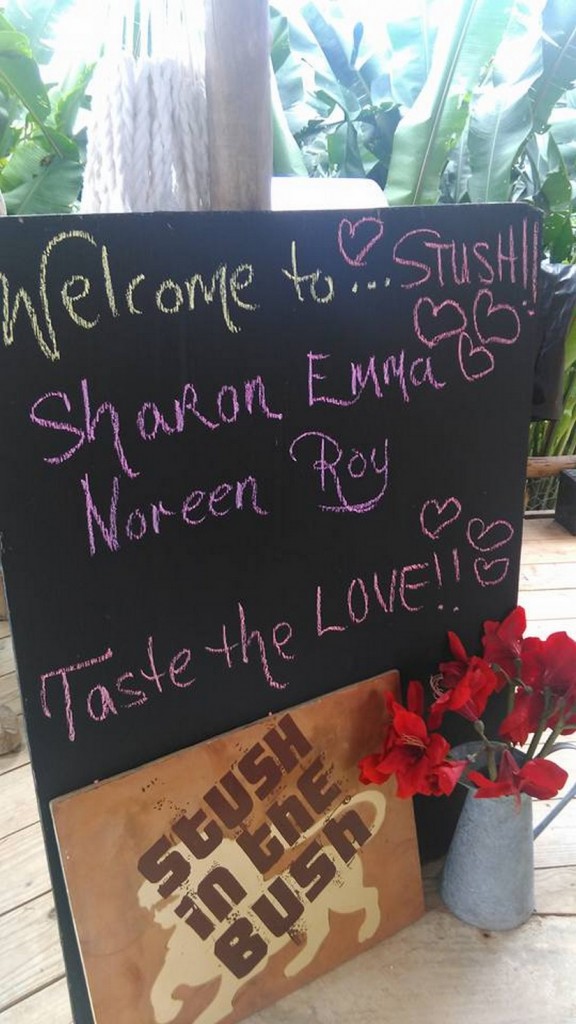 Welcome to... STUSH!!
Sharon Emma
Noreen Roy
Taste the LOVE!!
Stush
in the
Bush